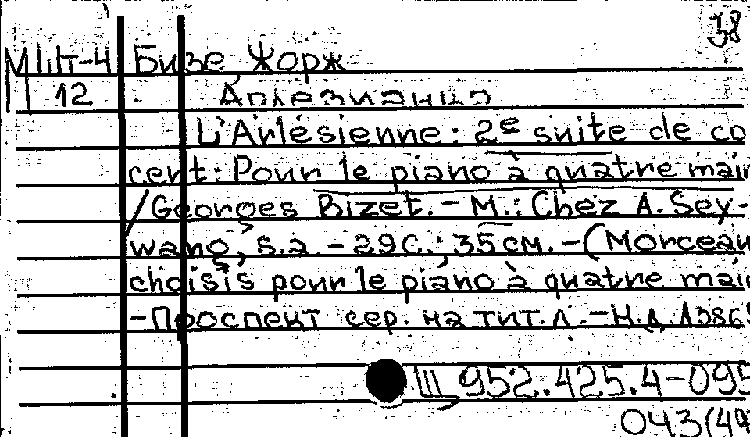 38
МШт-4 Бизе, Жорж
12 Арлезианка
L'Arlésienne: 2e suite de co
cert: Pour le piano à quatre main
/Georges Bizet. - М.: Chez A. Sey-
wang, s.a. - 29с.; 35см. - (Morceau
choisis pour le piano à quatre mai
- Проспект сер. на тит.л. - Н.д. А3865
Ш 952.425.4-095
043(49